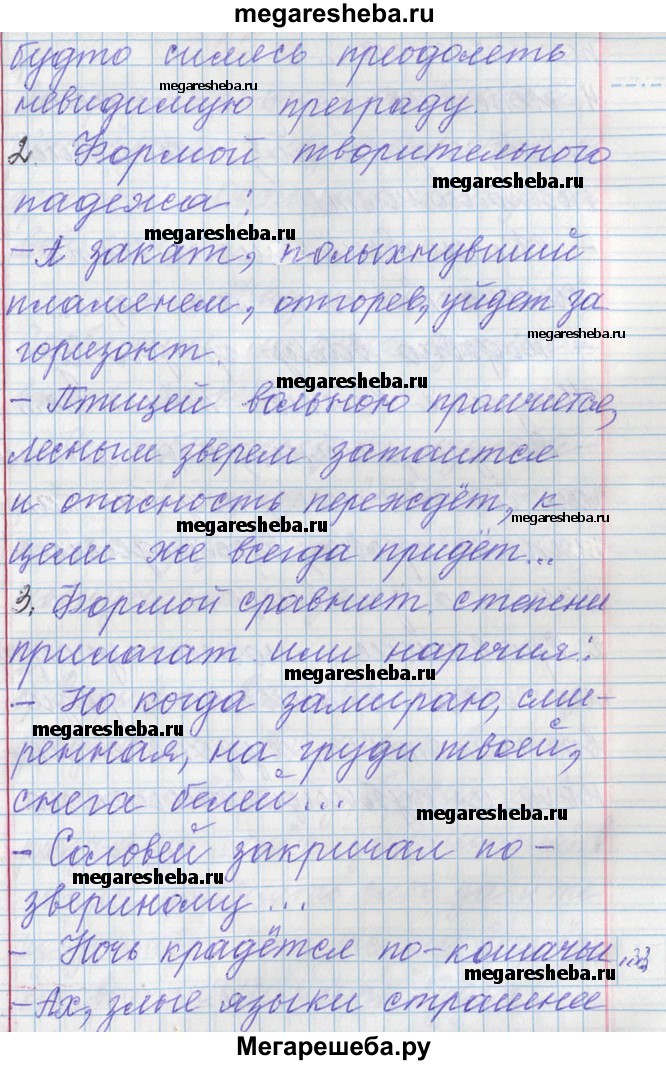 megaresheba.ru
будто силясь преодолеть
megaresheba.ru
невидимую преграду.
2. Формой творительного
megaresheba.ru
падежа:
megaresheba.ru
- А закат, полыхнувший
пламенем, отгорев, уйдет за
megaresheba.ru
горизонт.
megaresheba.ru
- Птицей вольною промчится,
лесным зверем затаится
и опасность переждёт, к
megaresheba.ru
megaresheba.ru
цели же всегда придёт...
3. Формой сравнит. степени
прилагат. или наречия:
megaresheba.ru
- Но когда замираю, сми-
megaresheba.ru
ренная, на груди твоей,
снега белей...
megaresheba.ru
- Соловей закричал по-
megaresheba.ru
звериному...
- Ночь крадётся по-кошачьи
megaresheba.ru
- Ах, злые языки страшнее
Мегарешеба.ру